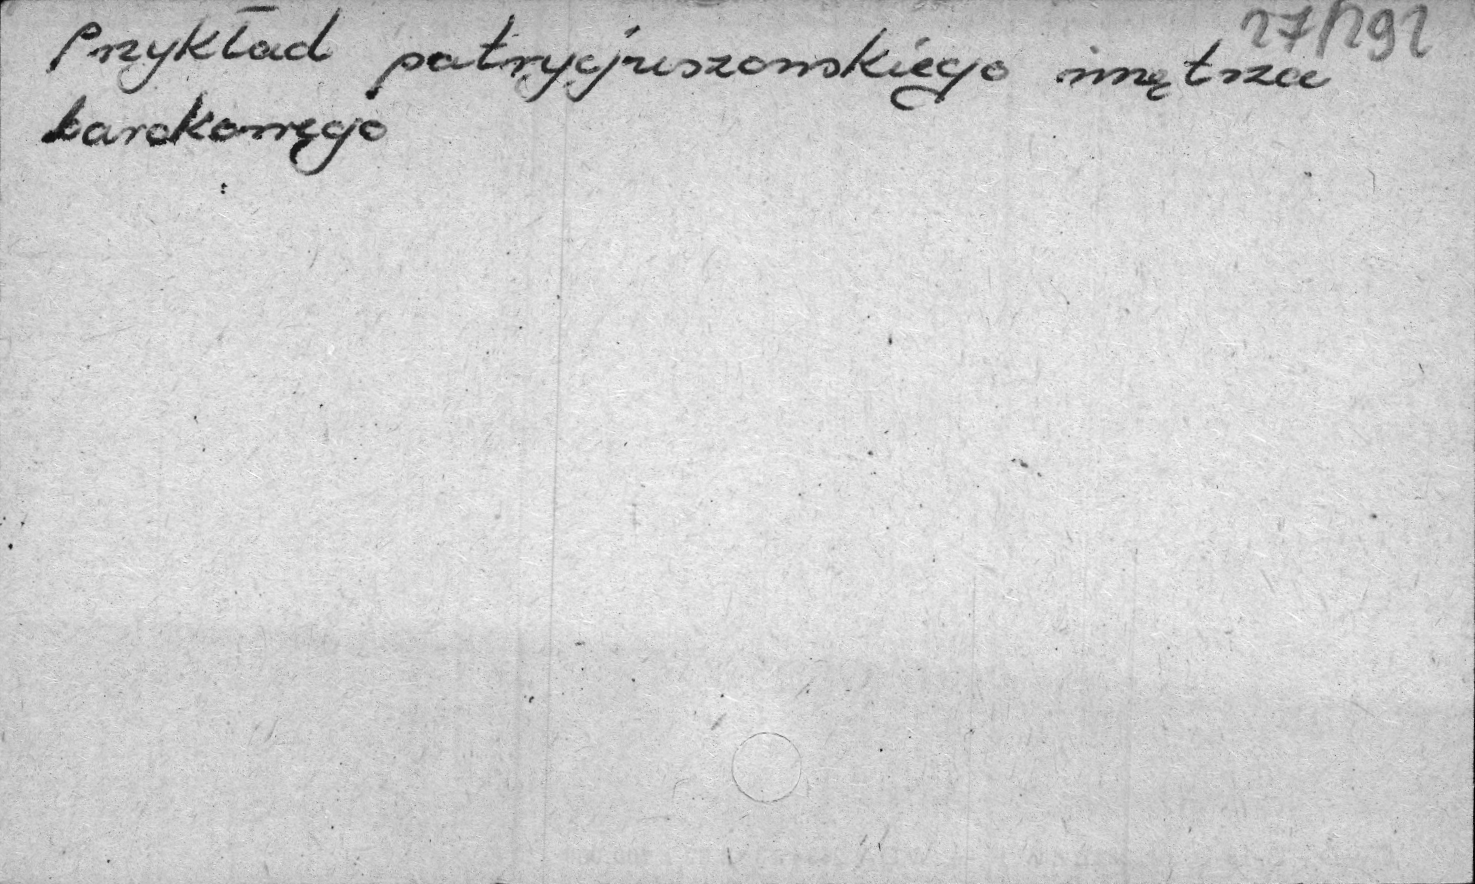 27/292
Przykład patrycjuszowskiego wnętrza
barokowego